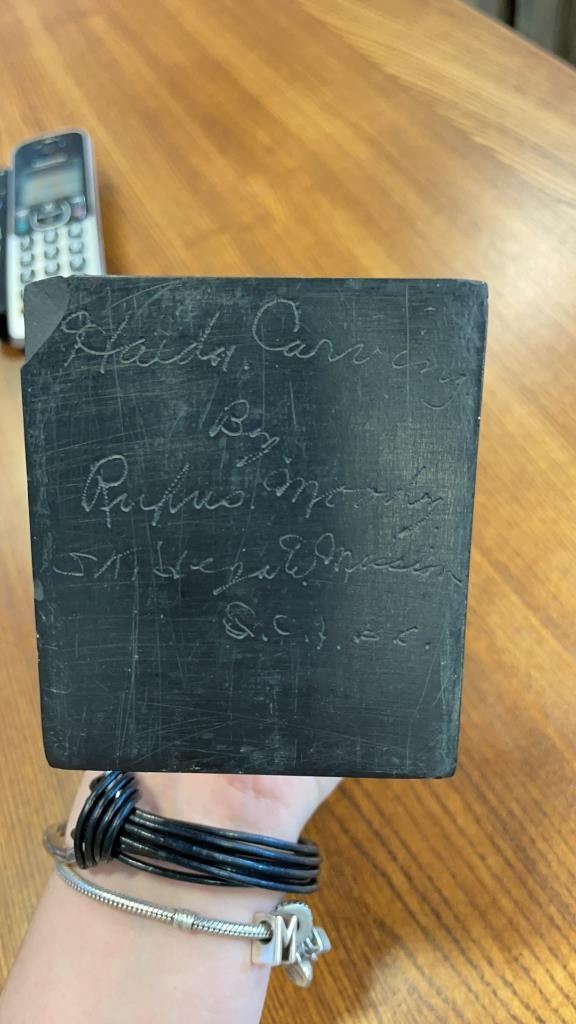 Haida Carving
By
Rufus Moody
Skidegate Mission
Q.C.I. B.C.
M